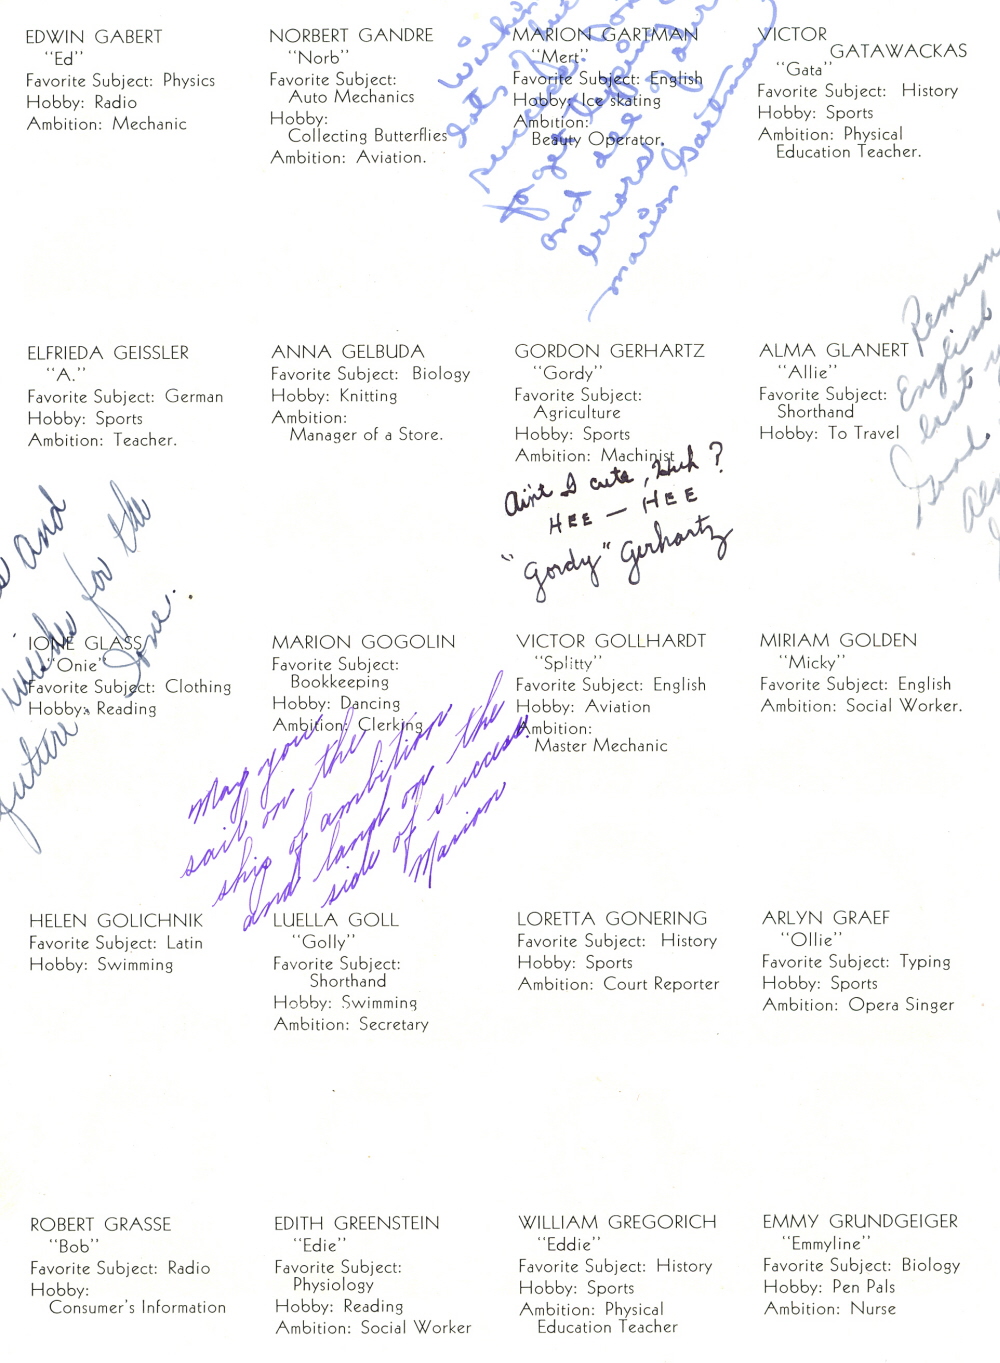 EDWIN GABERT
"Ed"
Favorite Subject: Physics
Hobby: Radio
Ambition: Mechanic
NORBERT GANDRE
"Norb"
Favorite Subject:
Auto Mechanics
Hobby:
Collecting Butterflies
Ambition: Aviation.
MARION GARTMAN
"Mert"
Favorite Subject: English
Hobby: Ice skating
Ambition:
Beauty Operator.
and
errors
Marion Gartman
VICTOR
GATAWACKAS
"Gata"
Favorite Subject: History
Hobby: Sports
Ambition: Physical
Education Teacher.
ELFRIEDA GEISSLER
"A."
Favorite Subject: German
Hobby: Sports
Ambition: Teacher.
ANNA GELBUDA
Favorite Subject: Biology
Hobby: Knitting
Ambition:
Manager of a Store.
GORDON GERHARTZ
"Gordy"
Favorite Subject:
Agriculture
Hobby: Sports
Ambition: Machinist
Ain't I cute, Huh?
HEE — HEE
"Gordy" Gerhartz
ALMA GLANERT
"Allie"
Favorite Subject:
Shorthand
Hobby: To Travel
English
last
Good.
and
wishes for the
future.
Ione.
IONE GLASS
"Onie"
Favorite Subject: Clothing
Hobby: Reading
MARION GOGOLIN
Favorite Subject:
Bookkeeping
Hobby: Dancing
Ambition: Clerking
May you
sail on the
ship of ambition
and land on the
side of success
Marion
VICTOR GOLLHARDT
"Splitty"
Favorite Subject: English
Hobby: Aviation
Ambition:
Master Mechanic
MIRIAM GOLDEN
"Micky"
Favorite Subject: English
Ambition: Social Worker.
HELEN GOLICHNIK
Favorite Subject: Latin
Hobby: Swimming
LUELLA GOLL
"Golly"
Favorite Subject:
Shorthand
Hobby: Swimming
Ambition: Secretary
LORETTA GONERING
Favorite Subject: History
Hobby: Sports
Ambition: Court Reporter
ARLYN GRAEF
"Ollie"
Favorite Subject: Typing
Hobby: Sports
Ambition: Opera Singer
ROBERT GRASSE
"Bob"
Favorite Subject: Radio
Hobby:
Consumer's Information
EDITH GREENSTEIN
"Edie"
Favorite Subject:
Physiology
Hobby: Reading
Ambition: Social Worker
WILLIAM GREGORICH
"Eddie"
Favorite Subject: History
Hobby: Sports
Ambition: Physical
Education Teacher
EMMY GRUNDGEIGER
"Emmyline"
Favorite Subject: Biology
Hobby: Pen Pals
Ambition: Nurse